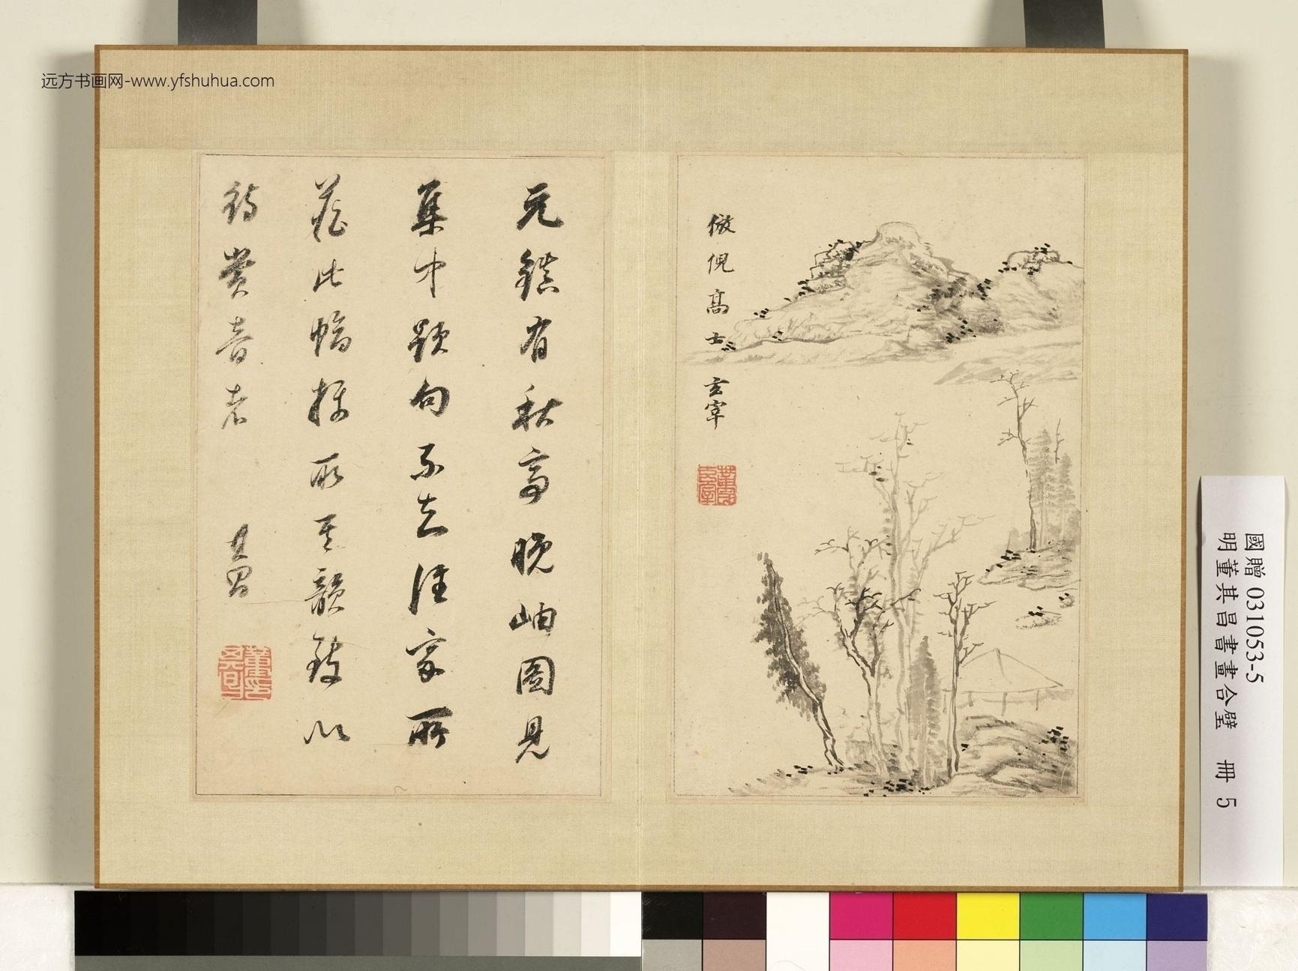 远方书画网-www.yfshuhua.com
倣倪高士
玄宰
元鎮有秋亭晚岫圖見
集中題句不知誰家所
藏此幅擬所其韻致以
待賞音者
其昌
國贈 031053-5
明董其昌書畫合璧 冊 5